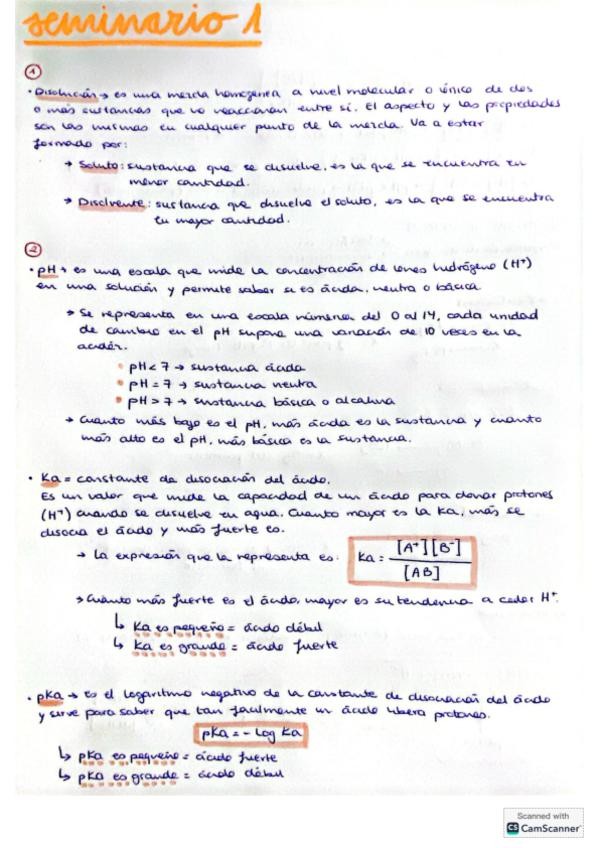 seminario 1
①
• Disolución → es una mezcla homogénea a nivel molecular o iónico de dos
o más sustancias que no reaccionan entre sí. El aspecto y las propiedades
son las mismas en cualquier punto de la mezcla. Va a estar
formado por:
→ Soluto: sustancia que se disuelve, es la que se encuentra en
menor cantidad.
→ Disolvente: sustancia que disuelve el soluto, es la que se encuentra
en mayor cantidad.
②
• pH → es una escala que mide la concentración de iones hidrógeno (H⁺)
en una solución y permite saber si es ácida, neutra o básica
→ Se representa en una escala númerica del 0 al 14, cada unidad
de cambio en el pH supone una variación de 10 veces en la
acidez.
• pH < 7 → sustancia ácida
• pH = 7 → sustancia neutra
• pH > 7 → sustancia básica o alcalina
→ Cuanto más bajo es el pH, más ácida es la sustancia y cuanto
más alto es el pH, más básica es la sustancia.
• Ka = constante de disociación del ácido.
Es un valor que mide la capacidad de un ácido para donar protones
(H⁺) cuando se disuelve en agua. Cuanto mayor es la Ka, más se
disocia el ácido y más fuerte es.
→ La expresión que la representa es: Ka = [A⁺][B⁻] / [AB]
→ Cuánto más fuerte es el ácido, mayor es su tendencia a ceder H⁺.
↳ Ka es pequeño = ácido débil
↳ Ka es grande = ácido fuerte
• pKa → es el logaritmo negativo de la constante de disociación del ácido
y sirve para saber que tan facilmente un ácido libera protones.
pKa = - log Ka
↳ pKa es pequeño = ácido fuerte
↳ pKa es grande = ácido débil
Scanned with
CS CamScanner